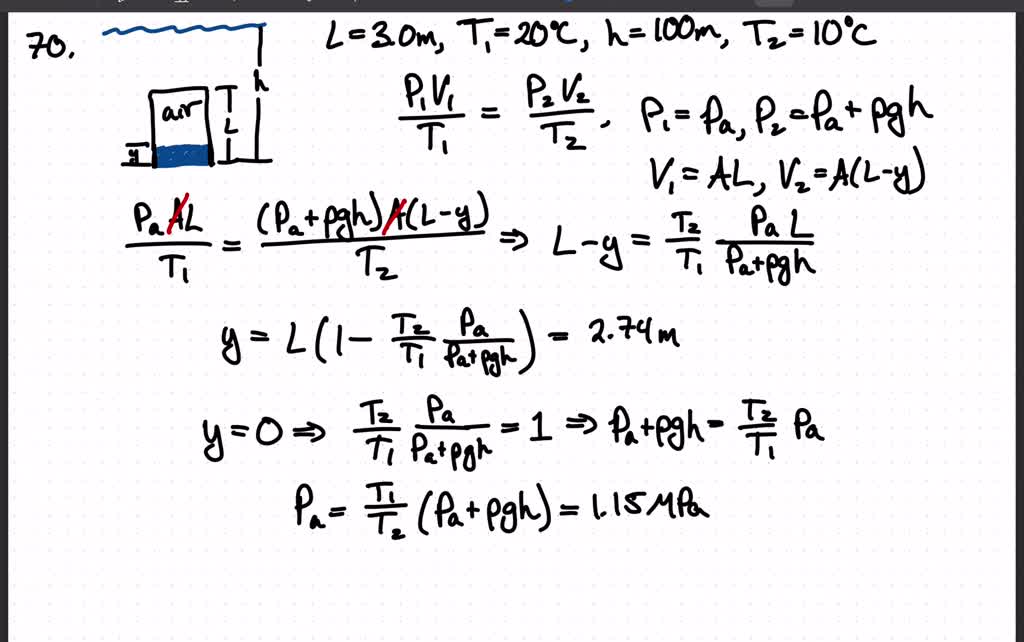 70.
L=3.0m, T₁=20°C, h=100m, T₂=10°C
h
air
T
L
y
P₁V₁/T₁ = P₂V₂/T₂. P₁=Pa, P₂=Pa+ρgh
V₁=AL, V₂=A(L-y)
PaAL/T₁ = (Pa+ρgh)A(L-y)/T₂ ⇒ L-y = T₂/T₁ PaL/(Pa+ρgh)
y = L(1 - T₂/T₁ Pa/(Pa+ρgh)) = 2.74m
y=0 ⇒ T₂/T₁ Pa/(Pa+ρgh) = 1 ⇒ Pa+ρgh = T₂/T₁ Pa
Pa = T₁/T₂ (Pa+ρgh) = 1.15MPa